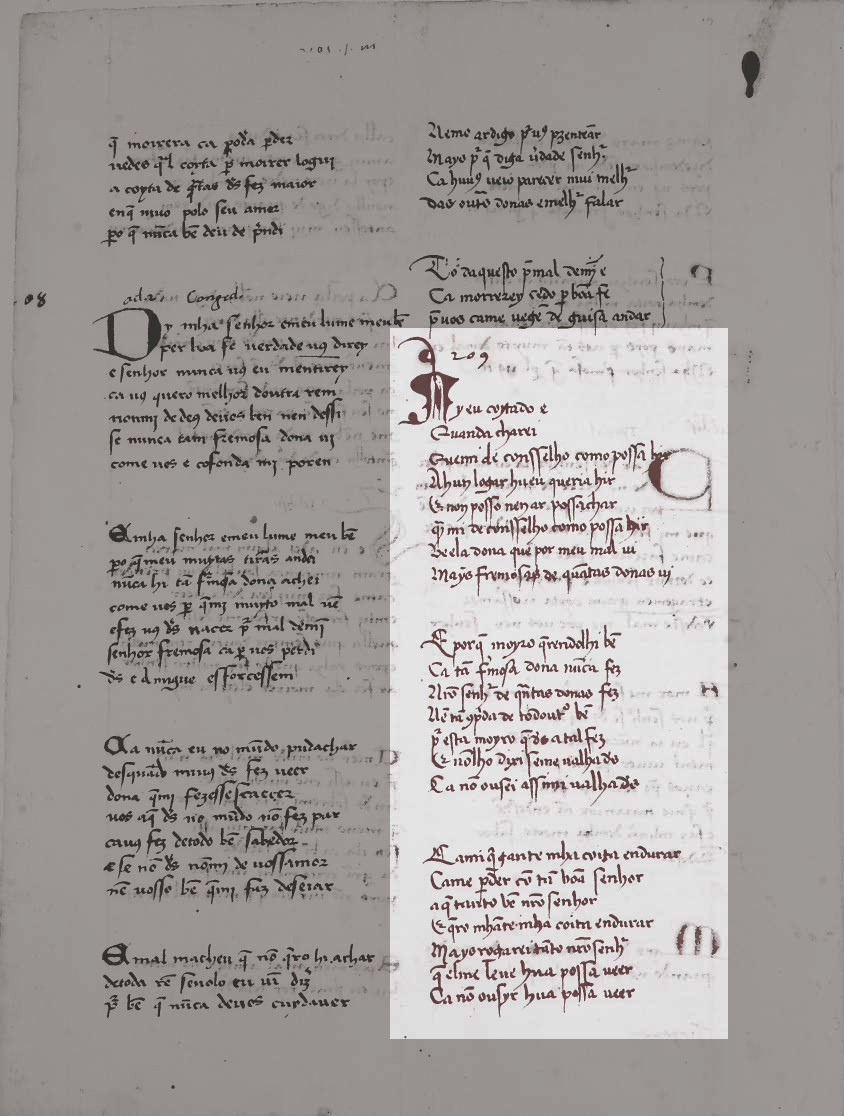 q̄ morrera ca pod̓a p̱der
uedes q̄l coyta p̱ moirer logui
a coyta de q̄tas ds̄ fez maior
enq̄ uiuo polo seu amor
p̱o q̄ nūca bē deu de p̓ndi
08
Conged
Dy mha senhor e meu lume meu bē
per boa fe uerdade uꝯ direy
e senhor nunca uꝯ eu mentirey
ca uꝯ quero melhor doutra rem
nonmi de deꝯ deuos ben nen dessi
se nunca tam fremosa dona ui
come uos e cofonda mi poren
A mha senhor e meu lume meu bē
p̱o q̄ meu muytas tiras andei
nūca hi tā fm̓osa dona achei
come uos p̱ q̄mi muyto mal uē
e fez uꝯ ds̄ nacer p̱ mal demī
senhor fremosa ca p̱ uos perdi
ds̄ e amigue esforcessem
Ca nūca eu no mūdo pudachar
desquādo naui ds̄ fez ueer
dona q̄mi fezesse
uos aq̄ ds̄ no mūdo nō fez par
cauꝯ fez detodo bē sabedor
e se nō ds̄ nōmi de uossamor
nē uosso bē q̄mi faz desejar
A mal macheu q̄ nō q̄ro hi achar
detoda rē senolo eu ui diz
p̱ bē q̄ nūca deuos cuydauer
Neme ardigo p̱ uꝯ p̱zentear
Mayo p̱ q̄ diga u̓dade senh̓
Ca huuꝯ ueio parecer mui melh̓
Das out̓s donas e melh̓ falar
Todaquesto p̱ mal demī e
Ca morrerey cedo p̱ boā fe
p̱ uos came uegē de guisa andar
209
Ay eu coytado e
Quandacharei
Quemi de conselho como possa hir
A hun logar hu eu queria hir
E non posso nen ar possachar
q̄ mi de cōsselho como possa hir
Veela dona que por meu mal ui
Mays fremosas de quātas donas ui
E porq̄ moyro q̄rendolhi bē
Ca tam fm̓osa dona nūca fez
Nr̄o senh̓ de q̄ntas donas fez
Nē tā ꝯp̱da de todout̓o bē
p̱ esta moyro q̄ ds̄ atal fez
E nōlho dixi seme ualha ds̄
Ca nō ousei assimi ualha ds̄
Cami q̄ gante mha coita endurar
Came p̱der cō tā boā senhor
aq̄ tanto bē nr̄o senhor
E q̄ro mhāte mha coita endurar
Mayo rogarei tāto nr̄o senh̓
q̄ elme leue hua possa ueer
Ca nō ousyr hua possa ueer